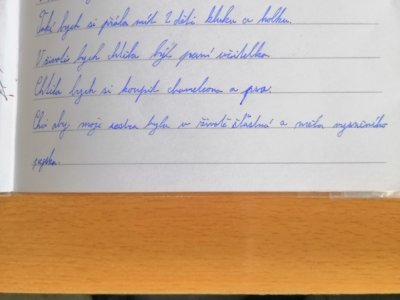 Také bych si přála mít 2 děti kluka a holku.
V životě bych chtěla být první učitelka.
Chtěla bych si koupit chameleona a psa.
Chci aby moje sestra byla v životě šťastná a měla vysněného
pejska.